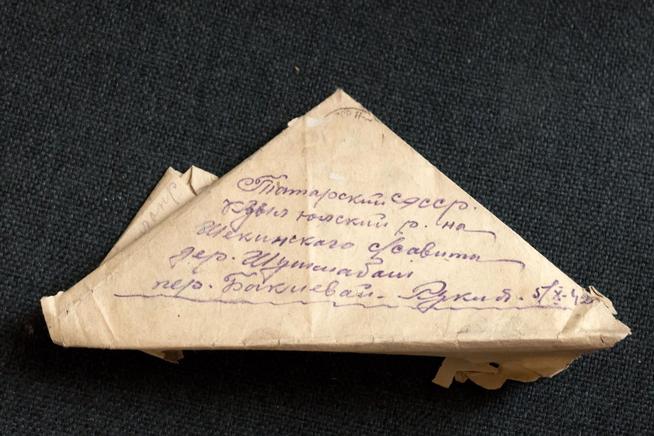 Татарский сдсср.
Кзыл юлский р. на
Шекинского с/савита
дер. Шушмабаш
пер. Бакиевай. Рукия. 5/X-42